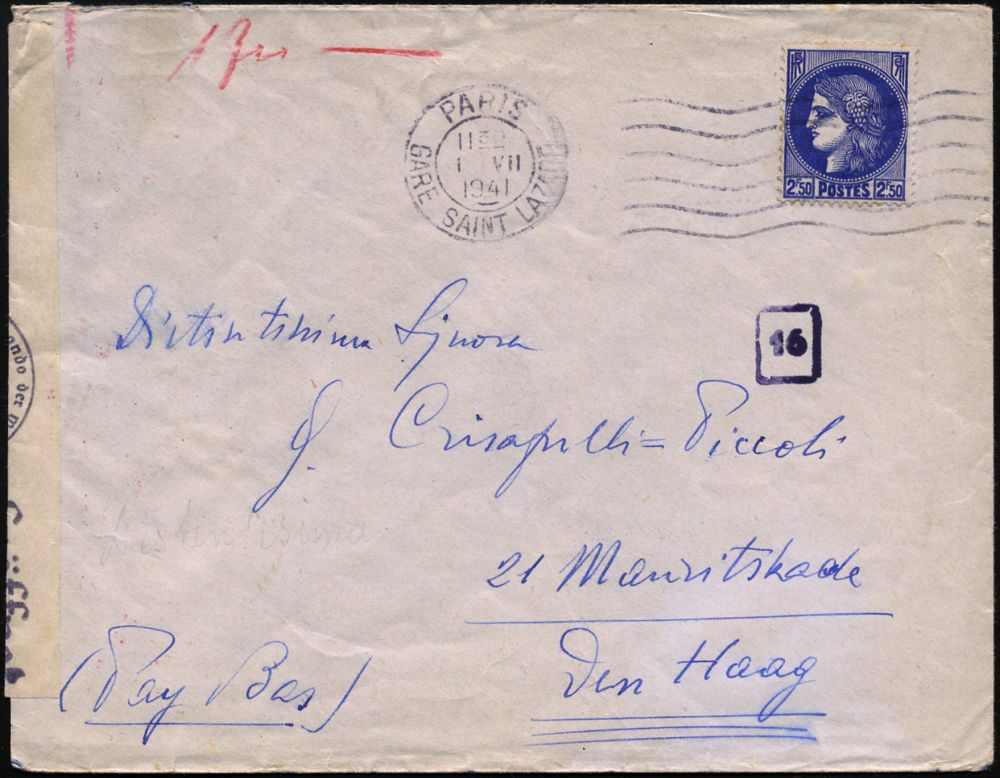 PARIS
11 30
1 VII
1941
GARE SAINT LAZARE
2f50 POSTES 2f50
Distintissima Signora
16
G. Crisafulli=Piccoli
Distintissima
21 Mauritskade
Den Haag
(Pay Bas)
ando der